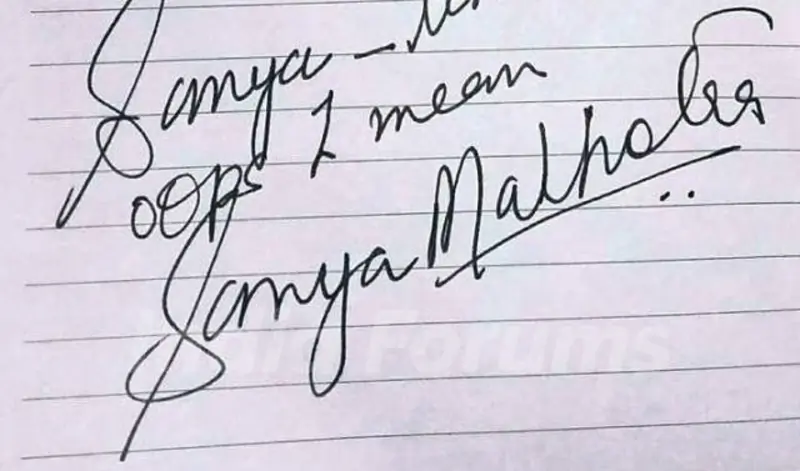 Sanya –
oops I mean
Sanya Malhotra
India Forums